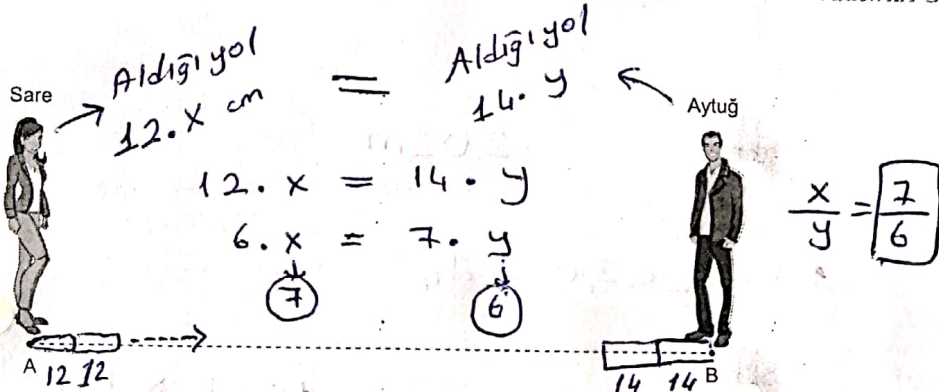 Sare
Aldığı yol
12.x cm
=
Aldığı yol
14.y
Aytuğ
12.x = 14.y
6.x = 7.y
7
6
x/y = 7/6
A
12 12
14 14
B